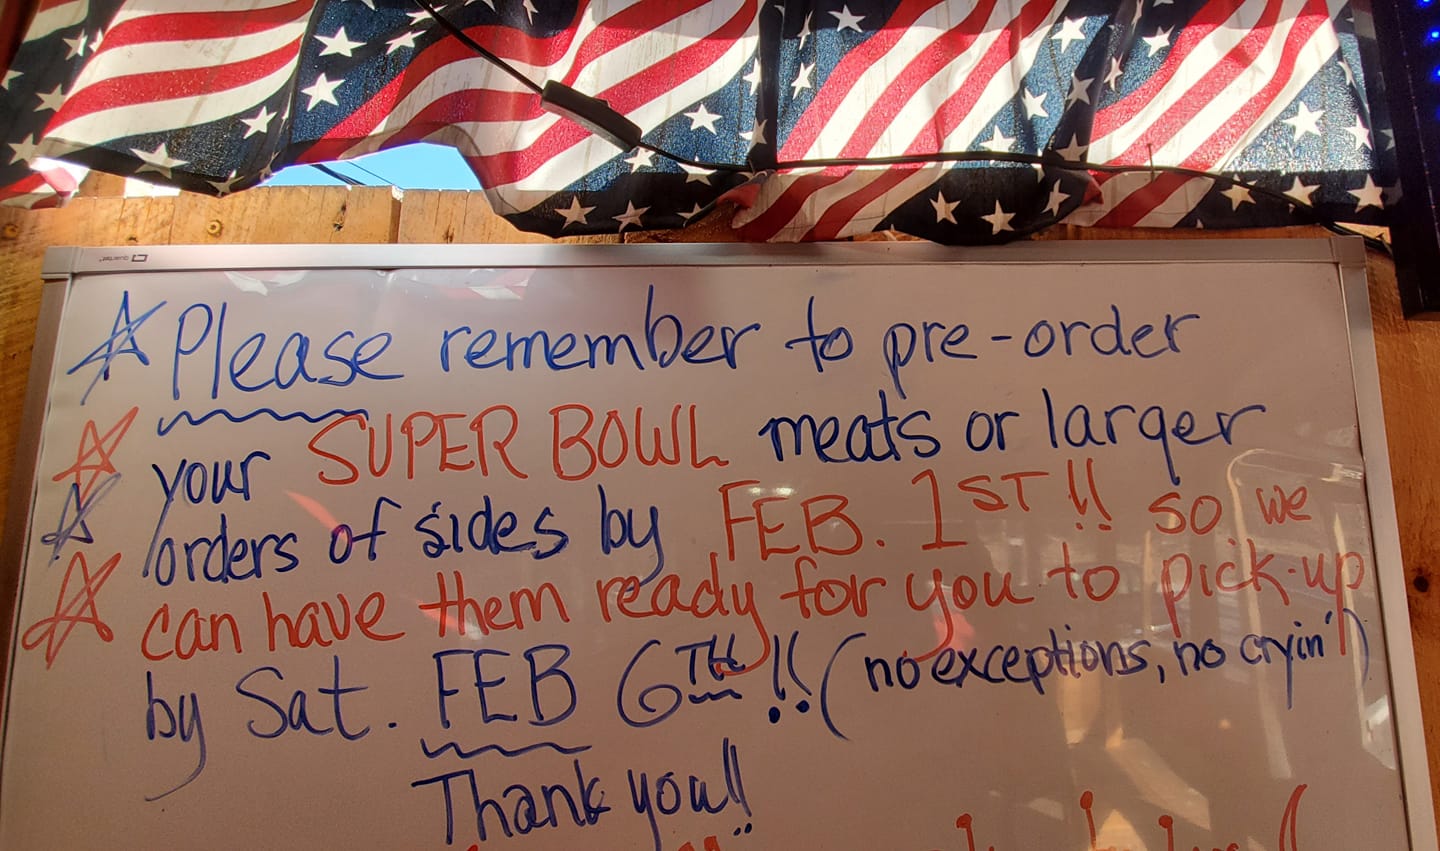 Quartet
Please remember to pre-order
your SUPER BOWL meats or larger
orders of sides by FEB. 1ST!! so we
can have them ready for you to pick-up
by Sat. FEB 6TH!! (no exceptions, no cryin')
Thank you!!